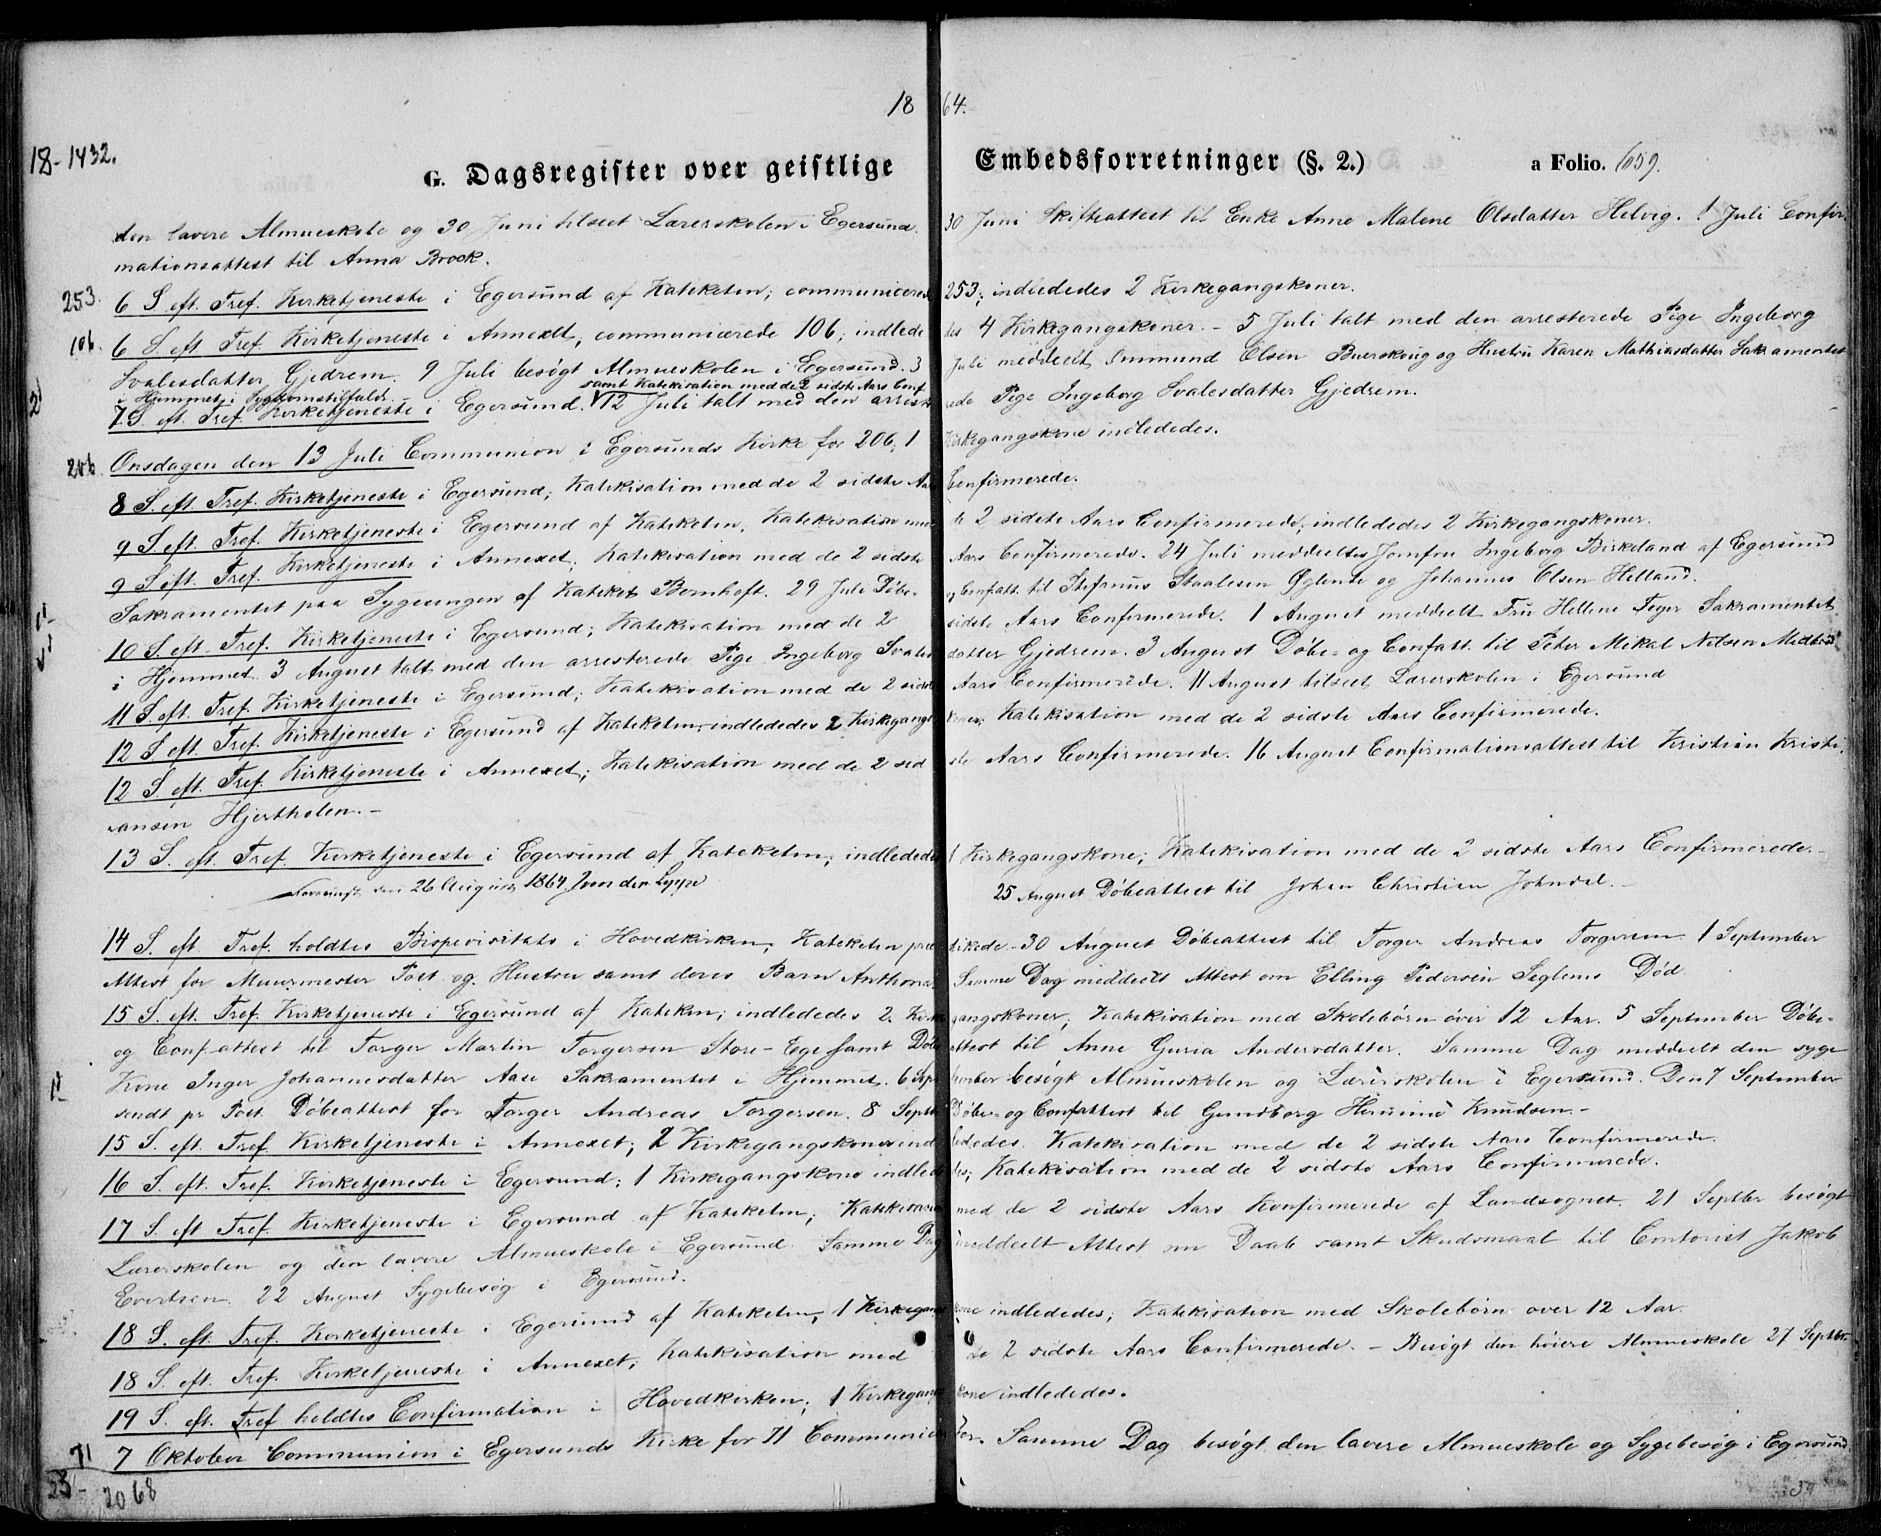 1864.
18-1432.
G. Dagsregister over geistlige Embedsforretninger (§. 2.) a Folio. 659.
den lavere Almueskole og 30 Juni tilseet Lærerskolen i Egersund. 30 Juni Skifteattest til Enke Anne Malene Olsdatter Helvig. 1 Juli Confir-
mationsattest til Anna Brock.
253. 6 S. eft. Tref. Kirketjeneste i Egersund af Kateketen; communicerede 253; indlededes 2 Kirkegangskoner.
106. 6 S. eft. Tref. Kirketjeneste i Annexet, communicerede 106; indlededes 4 Kirkegangskoner. - 5 Juli talt med den arresterede Pige Ingeborg
Svalesdatter Gjedrem. 9 Juli besøgt Almueskolen i Egersund. 3 Juli meddeelt Ommund Olsen Buerskoug og Hustru Karen Mathiasdatter Sakramentet
2 i Hjemmet i Sygdomstilfælde. samt Katekisation med de 2 sidste Aars Conf.
7 S. eft. Tref. Kirketjeneste i Egersund. 12 Juli talt med den arresterede Pige Ingeborg Svalesdatter Gjedrem.
206. Onsdagen den 13 Juli Communion i Egersunds Kirke for 206, 1 Kirkegangskone indlededes.
8 S. eft. Tref. Kirketjeneste i Egersund; Katekisation med de 2 sidste Aars Confirmerede.
9 S. eft. Tref. Kirketjeneste i Egersund af Kateketen, Katekisation med de 2 sidste Aars Confirmerede, indlededes 2 Kirkegangskoner.
9 S. eft. Tref. Kirketjeneste i Annexet; Katekisation med de 2 sidste Aars Confirmerede. 24 Juli meddeeltes Jomfru Ingeborg Birkeland af Egersund
Sakramentet paa Sygesengen af Kateket Bernhoft. 29 Juli Døbe- og Confatt. til Stefanus Staalesen Øglende og Johannes Olsen Helland.
10 S. eft. Tref. Kirketjeneste i Egersund; Katekisation med de 2 sidste Aars Confirmerede. 1 August meddeelt Fru Hellene Feyer Sakramentet
i Hjemmet. 3 August talt med den arresterede Pige Ingeborg Svalesdatter Gjedrem. 3 August Døbe- og Confatt. til Peter Mikal Nilsen
11 S. eft. Tref. Kirketjeneste i Egersund; Katekisation med de 2 sidste Aars Confirmerede. 11 August tilseet Lærerskolen i Egersund
12 S. eft. Tref. Kirketjeneste i Egersund af Kateketen, indlededes 2 Kirkegangskoner, Katekisation med de 2 sidste Aars Confirmerede.
12 S. eft. Tref. Kirketjeneste i Annexet; Katekisation med de 2 sidste Aars Confirmerede. 16 August Confirmationsattest til Kristian Kristi-
ansen Hjertholen. -
13 S. eft. Tref. Kirketjeneste i Egersund af Kateketen, indlededes 1 Kirkegangskone; Katekisation med de 2 sidste Aars Confirmerede. -
den 26 August 1864. Jens der Lyppe 25 August Døbeattest til Johan Christian Johndal. -
14 S. eft. Tref. holdtes Bispevisitats i Hovedkirken, Kateketen prædikede. 30 August Døbeattest til Torger Andreas Torgersen. 1 September
Attest for Muurmester Post og Hustru samt deres Barn Samme Dag meddeelt Attest om Elling Pedersen Seglems Død.
15 S. eft. Tref. Kirketjeneste i Egersund af Kateken; indlededes 2 Kirkegangskoner, Katekisation med Skolebørn over 12 Aar. 5 September Døbe-
og Conf. attest til Torger Martin Torgersen Store-Ege samt Døbeattest til Anne Guria Andersdatter. Samme Dag meddeelt den syge
Kone Inger Johannesdatter Aase Sakramentet i Hjemmet. 6 September besøgt Almueskolen og Lærerskolen i Egersund. Den 7 September
sendt pr Post Døbeattest for Torger Andreas Torgersen. 8 Septbr Døbe- og Confattest til Gundborg Knudsen. -
15 S. eft. Tref. Kirketjeneste i Annexet; 2 Kirkegangskoner indlededes. Katekisation med de 2 sidste Aars Confirmerede.
16 S. eft. Tref. Kirketjeneste i Egersund; 1 Kirkegangskone indlededes; Katekisation med de 2 sidste Aars Confirmerede.
17 S. eft Tref. Kirketjeneste i Egersund af Kateketen; Katekisation med de 2 sidste Aars Konfirmerede af Landsognet. 21 Septbr besøgt
Lærerskolen og den lavere Almueskole i Egersund. Samme Dag meddeelt Attest om Daab samt Skudsmaal til Contorist Jakob
Evertsen. 22 August Sygebesøg i Egersund.
18 S. eft. Tref. Kirketjeneste i Egersund af Kateketen, 1 Kirkegangskone indlededes; Katekisation med Skolebørn over 12 Aar.
18 S. eft. Tref. Kirketjeneste i Annexet; Katekisation med de 2 sidste Aars Confirmerede. - Besøgt den høiere Almueskole 27 Septbr.
19 S. eft. Tref holdtes Confirmation i Hovedkirken; 1 Kirkegangskone indlededes.
71 7 Oktober Communion i Egersunds Kirke for 71 Communicanter. Samme Dag besøgt den lavere Almueskole og Sygebesøg i Egersund
23- 2068